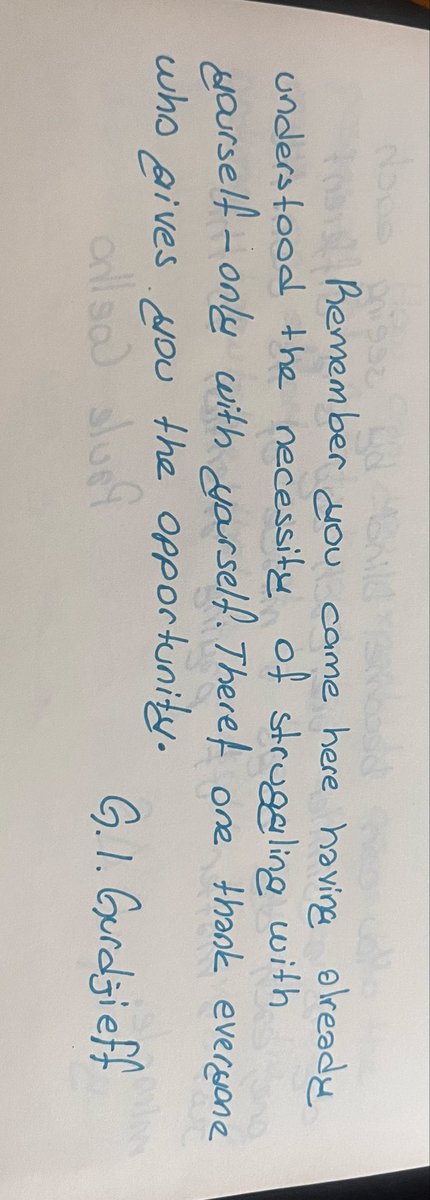 Remember you came here having already
understood the necessity of struggling with
yourself – only with yourself. Therefore thank everyone
who gives you the opportunity.
G. I. Gurdjieff